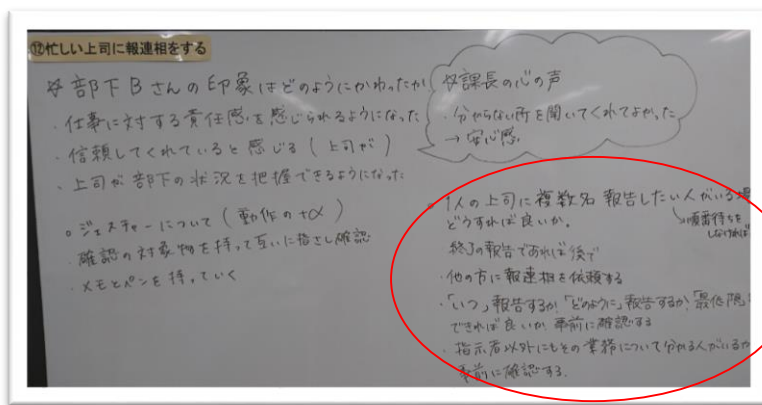 ⑫忙しい上司に報連相をする
☆部下Bさんの印象はどのようにかわったか
・仕事に対する責任感を感じられるようになった
・信頼してくれていると感じる(上司が)
・上司が部下の状況を把握できるようになった
○ジェスチャーについて(動作の+α)
・確認の対象物を持って互いに指さし確認
・メモとペンを持っていく
☆課長の心の声
・分からない所を聞いてくれてよかった
→安心感
1人の上司に複数名報告したい人がいる場
どうすれば良いか。
→順番待ちを
しなければ
終了の報告であれば後で
・他の方に報連相を依頼する
・「いつ」報告するか「どのように」報告するか「最低限
できれば良いか事前に確認する
・指示者以外にもその業務について分かる人がいるか
事前に確認する.